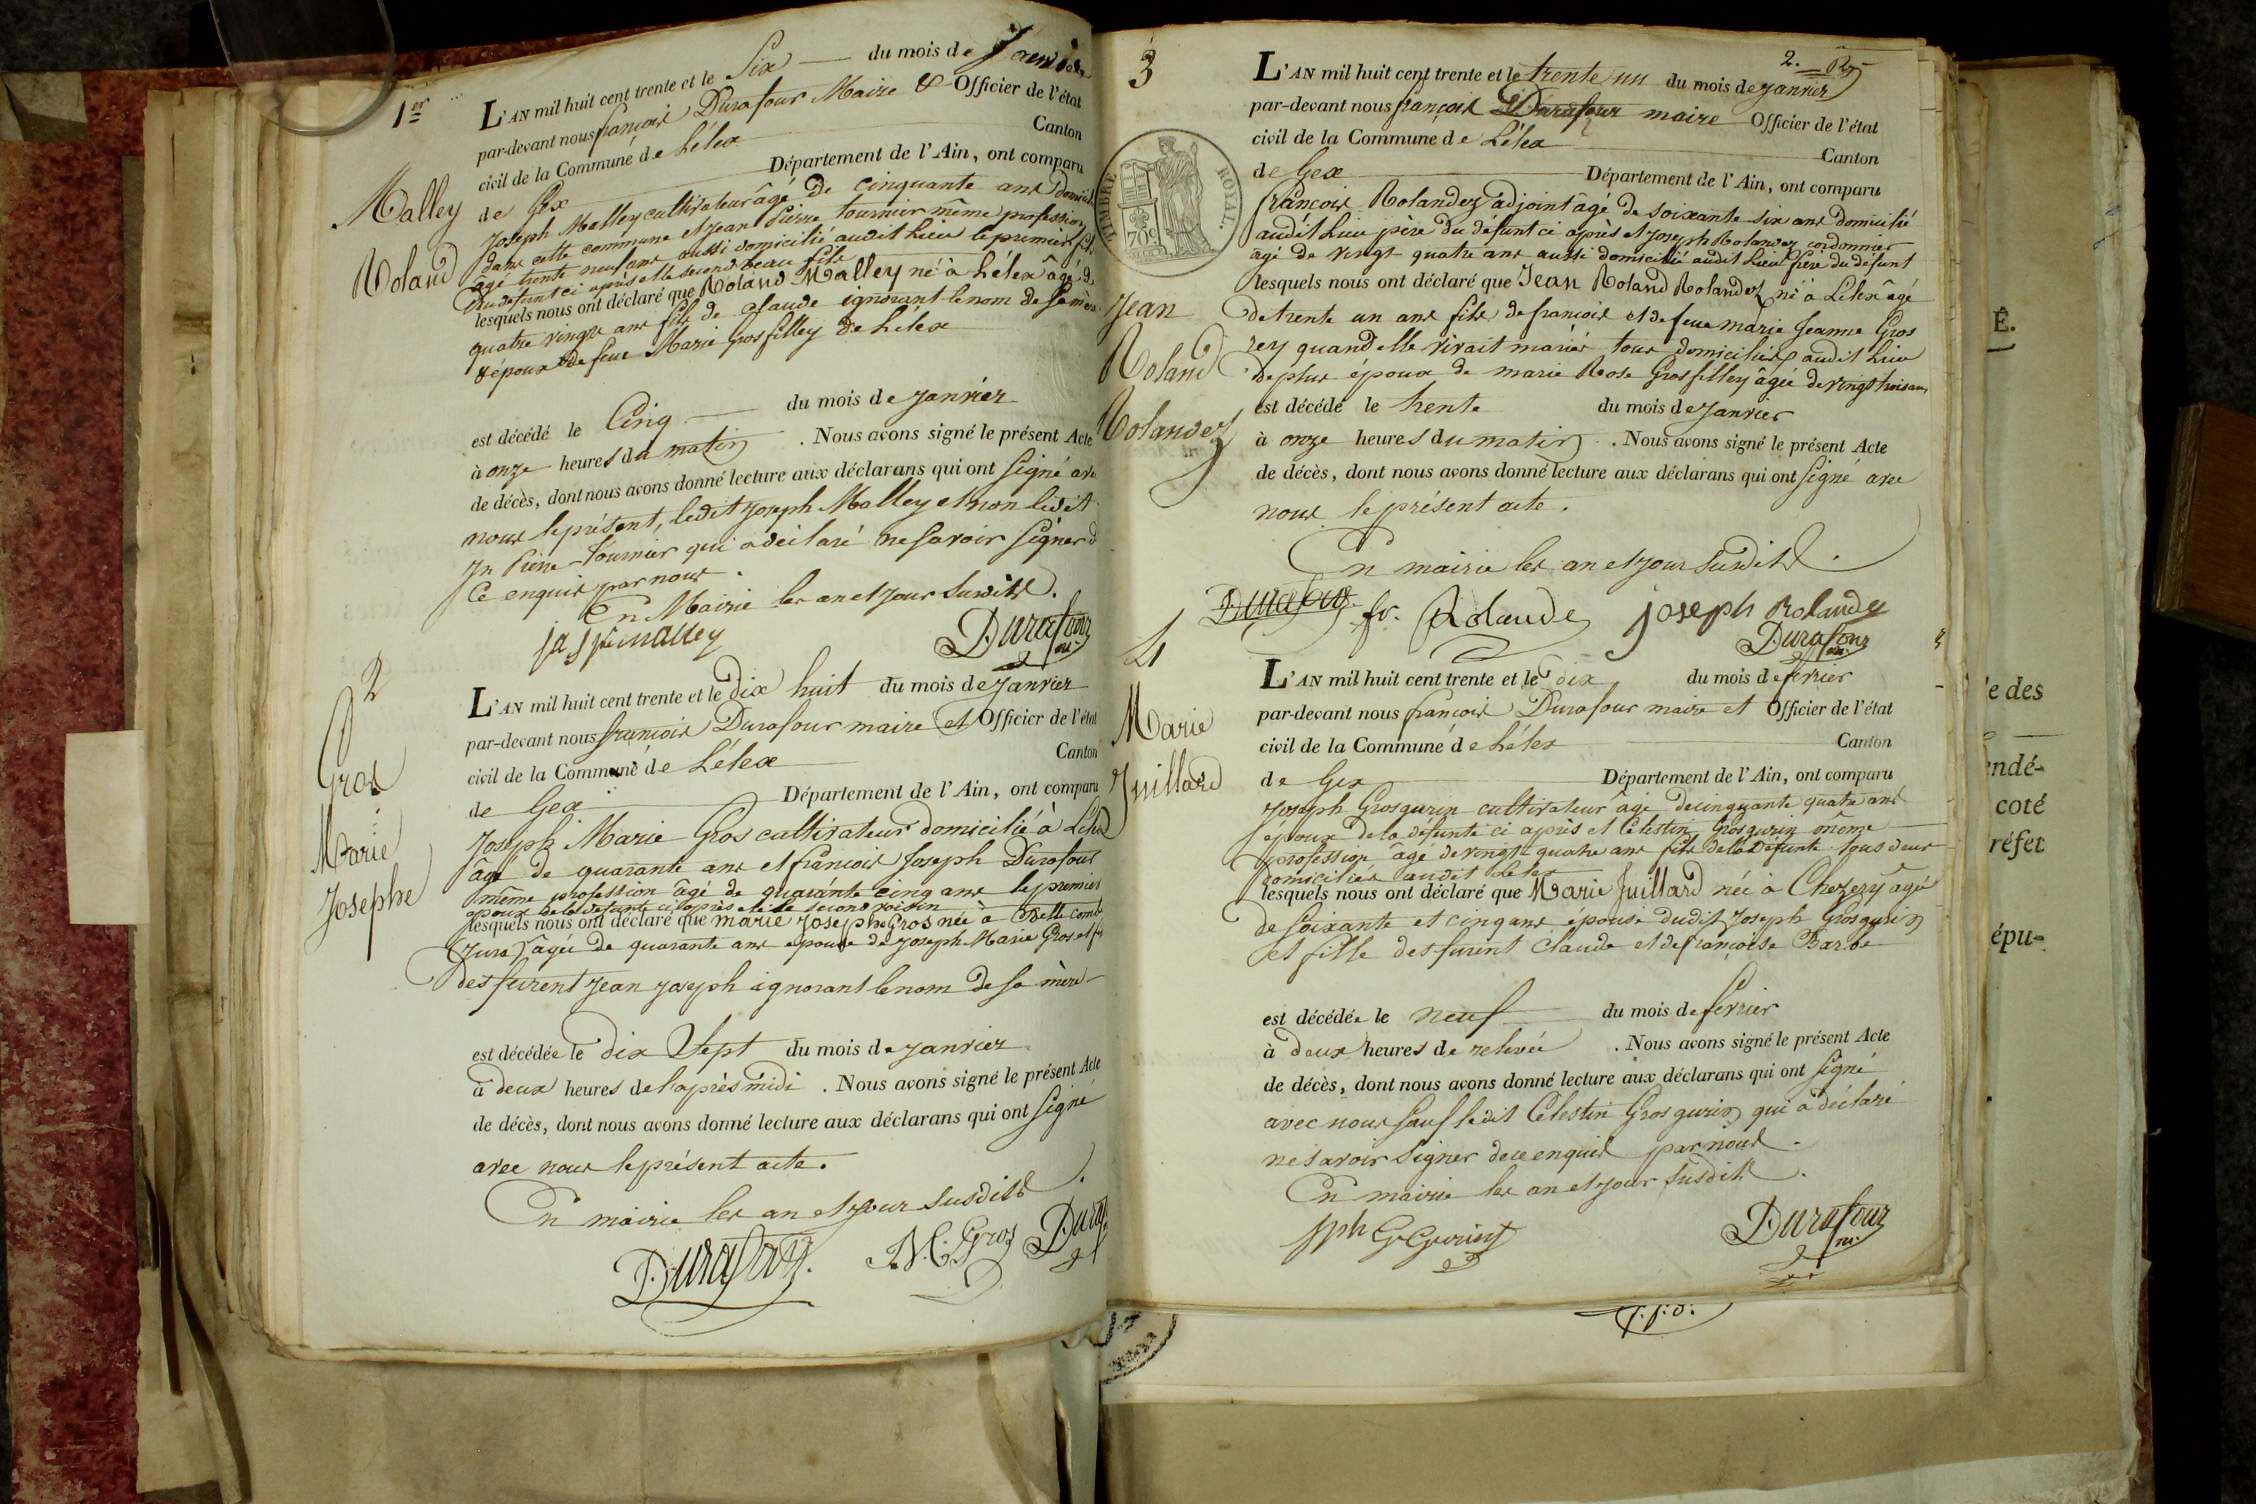 1er
L'AN mil huit cent trente et le Six du mois de Janvier
par-devant nous françois Durafour Maire & Officier de l'état
civil de la Commune de Lélex Canton
de Gex Département de l'Ain, ont comparu
Joseph Malley cultivateur âgé de cinquante ans domicil
dans cette commune et Jean Pierre tournier même profession
âgé trente neuf ans aussi domicilié audit Lieu le premier fils
du defunt ci après et le second beau fils
lesquels nous ont déclaré que Roland Malley né à Lélex âgé de
quatre vingts ans fils de claude ignorant le nom de sa mère
& époux de feue Marie Gros filley de Lélex
est décédé le Cinq du mois de Janvier
à onze heures du matin . Nous avons signé le présent Acte
de décès, dont nous avons donné lecture aux déclarans qui ont Signé ave
nous le présent, ledit Joseph Malley et non ledit
Jn Pierre Tournier qui a déclaré ne Savoir Signer d
Ce enquis par nous.
En Mairie les an et jour Susdits.
Malley
Roland
Durafour m.
2
Gros
Marie
Josephe
L'AN mil huit cent trente et le dix huit du mois de Janvier
par-devant nous françois Durafour maire et Officier de l'état
civil de la Commune de Lélex Canton
de Gex Département de l'Ain, ont comparu
Joseph Marie Gros cultivateur domicilié à Lélex
âgé de quarante ans et francois Joseph Durafour
même profession âgé de quarante cinq ans le premier
époux de la défunte ci après et le second voisin
lesquels nous ont déclaré que marie Josephe Gros née à Belle comb
(Jura) âgée de quarante ans epouse de Joseph Marie Gros et fi
des furent Jean Joseph ignorant le nom de sa mère
est décédée le dix Sept du mois de Janvier
à deux heures de l'après midi . Nous avons signé le présent Acte
de décès, dont nous avons donné lecture aux déclarans qui ont Signé
avec nous le présent acte.
En mairie les an et jour Susdits.
Durafour. J.M. Gros Duraf
2.
3
TIMBRE ROYAL.
70c
Jean
Roland
Rolandez
L'AN mil huit cent trente et le trente un du mois de Janvier
par-devant nous françois Durafour maire Officier de l'état
civil de la Commune de Lélex Canton
de Gex Département de l'Ain, ont comparu
francois Rolandez adjoint âgé de soixante six ans domicilié
audit Lieu père du défunt ci après et Joseph Rolandez cordonnier
âgé de vingt quatre ans aussi domicilié audit Lieu frère du défunt
lesquels nous ont déclaré que Jean Roland Rolandez né à Lélex âgé
de trente un ans fils de francois et de feue marie Jeanne Gros
rey quand elle vivait mariés tous domiciliés audit Lieu
de plus époux de marie Rose Gros filley âgée de vingt trois ans
est décédé le trente du mois de Janvier
à onze heures du matin . Nous avons signé le présent Acte
de décès, dont nous avons donné lecture aux déclarans qui ont Signé avec
nous le présent acte.
En mairie les an et jour Susdits.
Durafour. fr. Rolandez joseph Rolandez
Durafour m.
4
Marie
Juillard
L'AN mil huit cent trente et le dix du mois de fevrier
par-devant nous françois Durafour maire et Officier de l'état
civil de la Commune de Lélex Canton
de Gex Département de l'Ain, ont comparu
Joseph Grosgurin cultivateur âgé de cinquante quatre ans
époux de la défunte ci après et Célestin Grosgurin même
profession âgé de vingt quatre ans fils de la Défunte tous deux
domiciliés audit Lélex
lesquels nous ont déclaré que Marie Juillard née à Chezery âgée
de soixante et cinq ans epouse dudit Joseph Grosgurin
et fille des furent Claude et de françoise Barbe
est décédée le neuf du mois de fevrier
à deux heures de relevée . Nous avons signé le présent Acte
de décès, dont nous avons donné lecture aux déclarans qui ont Signé
avec nous sauf ledit Célestin Grosgurin qui a déclaré
ne savoir Signer de ce enquis par nous.
En mairie les an et jour Susdits.
Jph G Gurin Durafour m.
É.
e des
endé-
coté
réfet
épu-